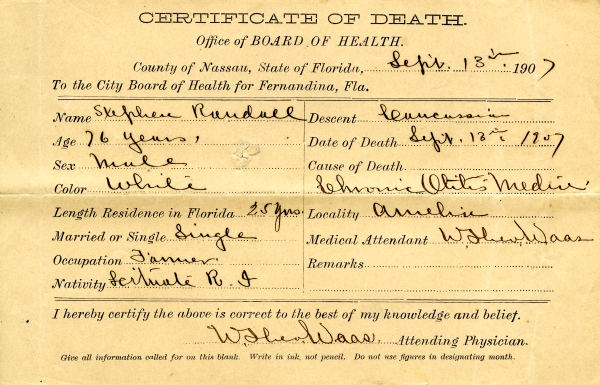 CERTIFICATE OF DEATH.
Office of BOARD OF HEALTH.
County of Nassau, State of Florida, Sept. 13th 1907
To the City Board of Health for Fernandina, Fla.
Name Stephen Randall
Age 76 years,
Sex Male
Color White
Length Residence in Florida 25 yrs.
Married or Single Single
Occupation Farmer
Nativity Scituate R. I
Descent Caucassian
Date of Death Sept. 13th 1907
Cause of Death
Chronic Otitis Media
Locality Amelia
Medical Attendant W. Theo. Waas
Remarks
I hereby certify the above is correct to the best of my knowledge and belief.
W. Theo. Waas, Attending Physician.
Give all information called for on this blank. Write in ink, not pencil. Do not use figures in designating month.